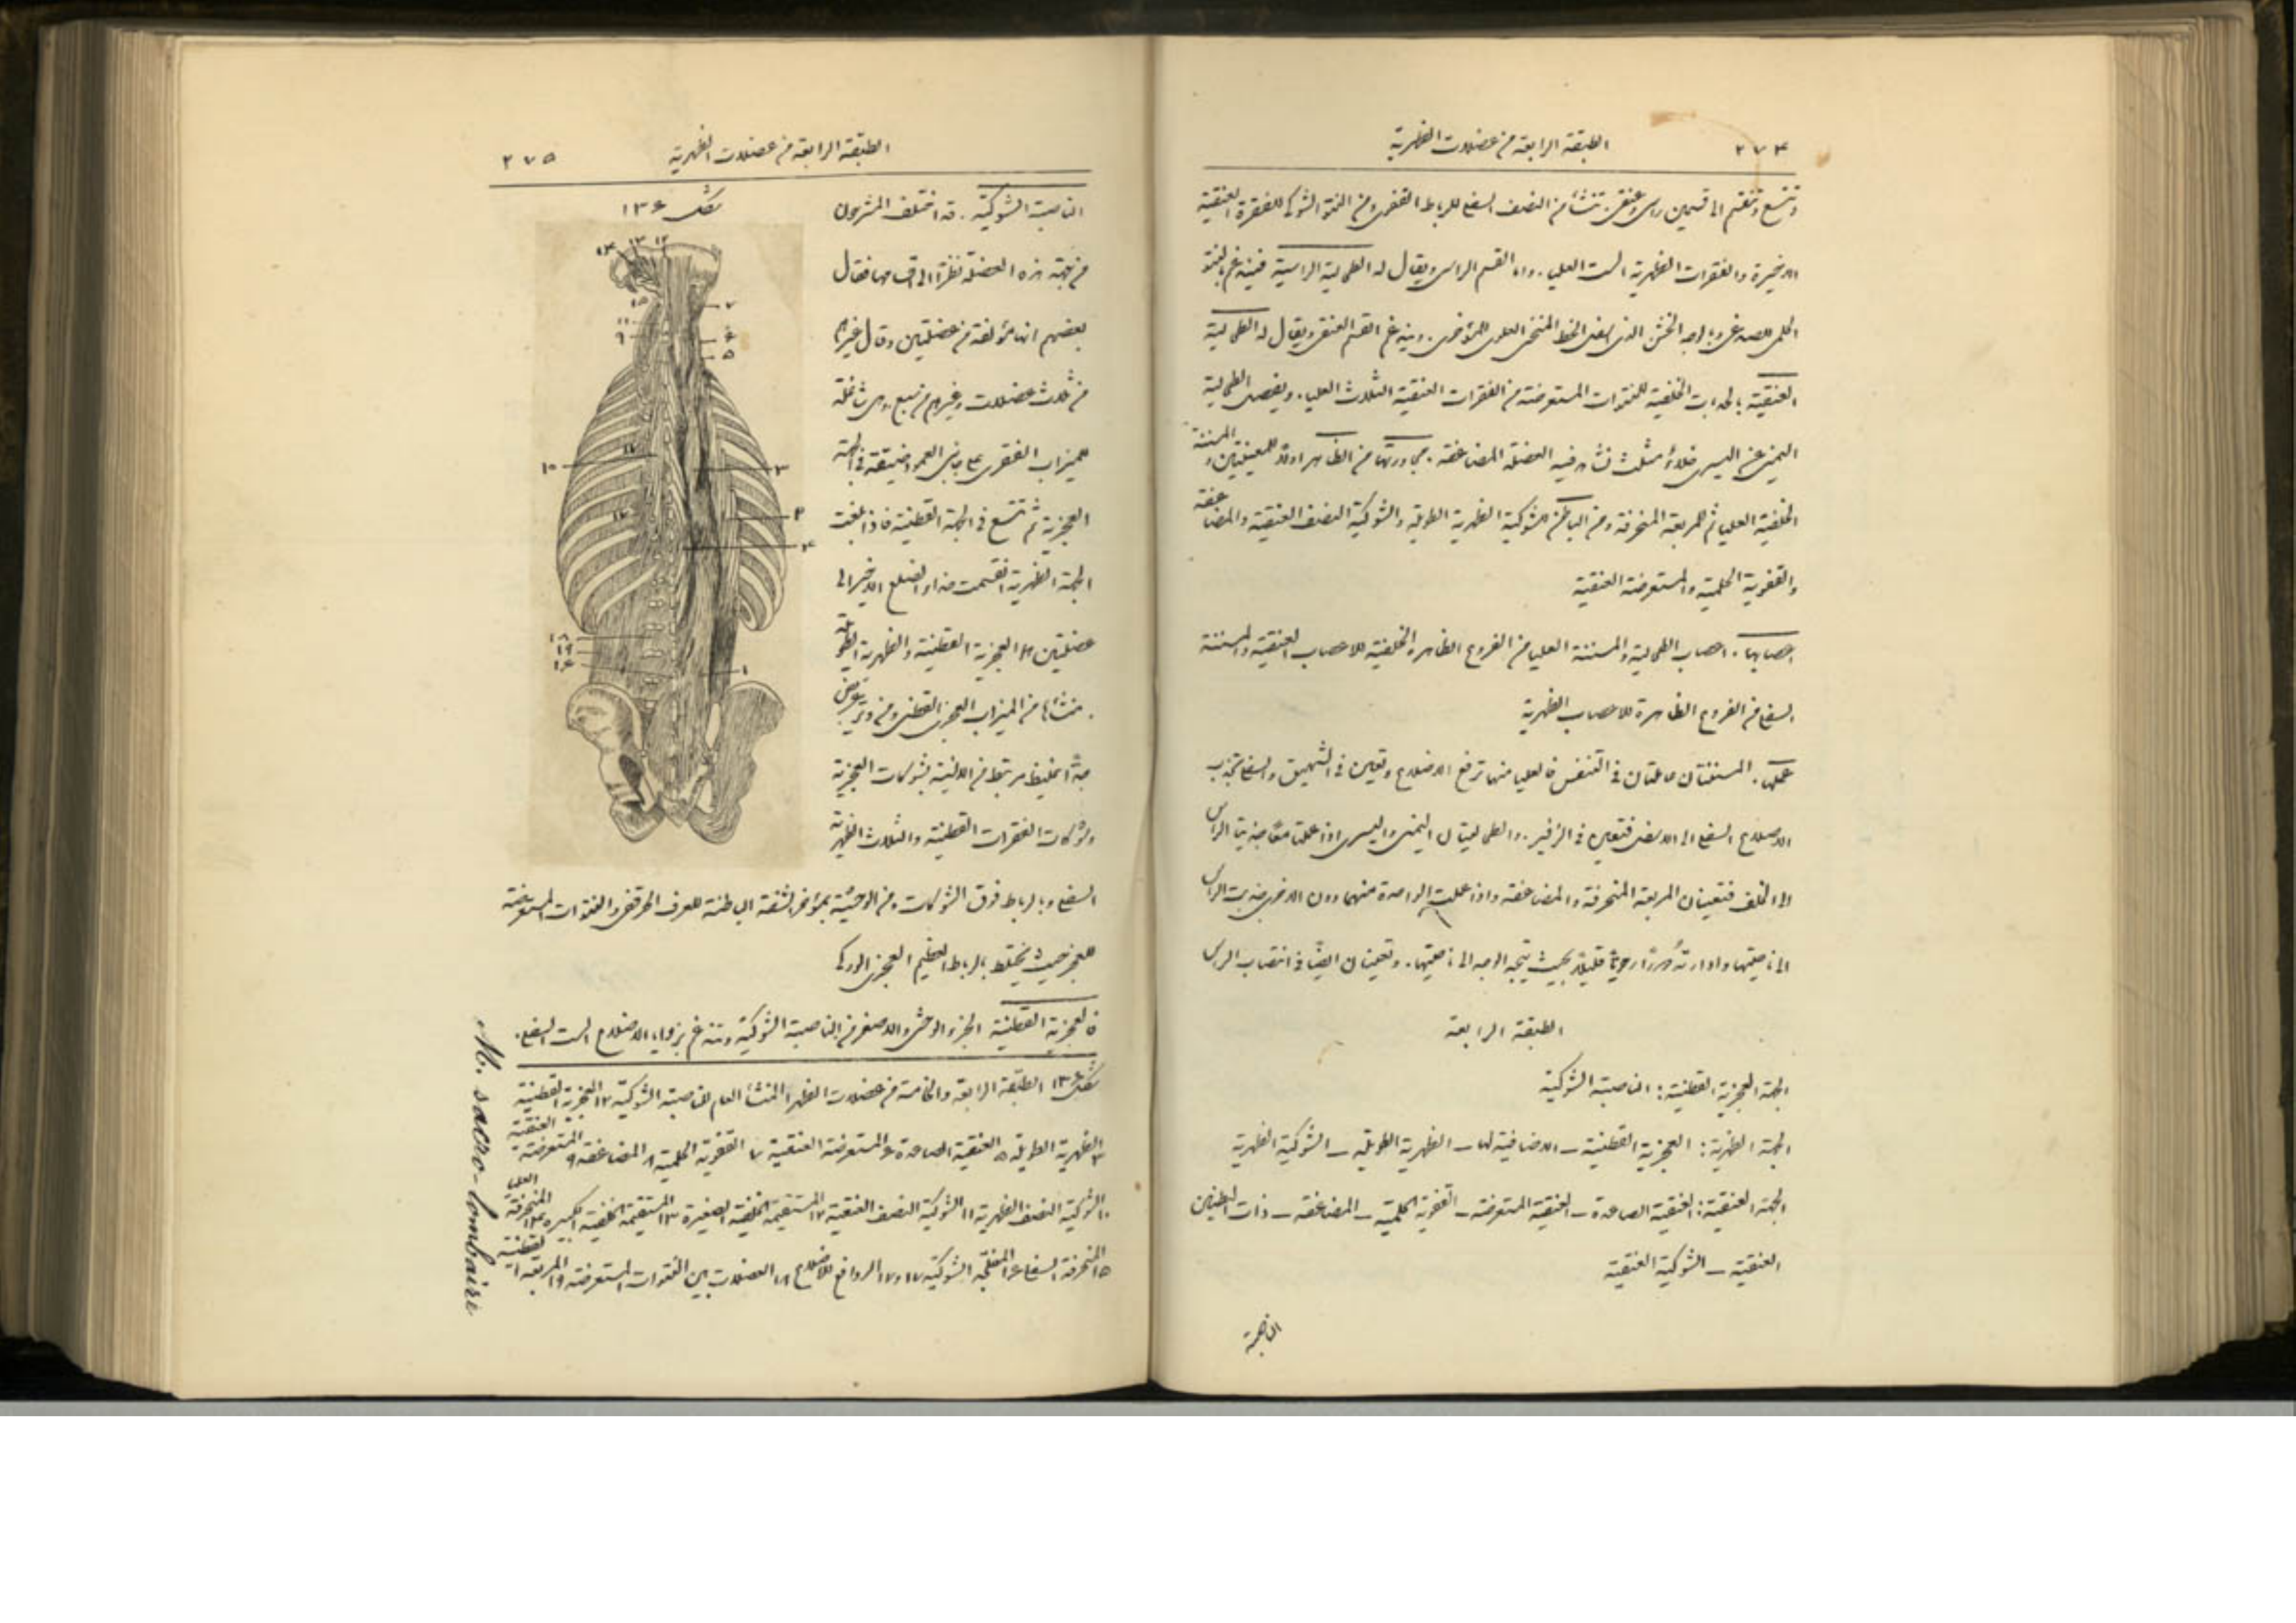 ٢٧٤ الطبقة الرابعة من عضلات الظهرية
وتتسع وتنقسم الى قسمين راسى وعنقى. تنشأ من النصف السفلى للرباط القفوى ومن النتو الشوكى للفقرة العنقية
الاخيرة والفقرات الظهرية الست العليا. واما القسم الراسى ويقال له الطحالية الراسية فيندغم بالنتو
الحلمى للصدغى وبالوجه الخشن الذى اسفل الخط المنحنى العلوى للمؤخرى. ويندغم القسم العنقى ويقال له الطحالية
العنقية بالحدبات الخلفية للنتوات المستعرضة من الفقرات العنقية الثلاث العليا. ويفصل الطحالية
اليمنى عن اليسرى خلاء مثلث تشاهد فيه العضلة المضاعفة. مجاورتها من الظاهر اولاً للمعينتين والمسننة
الخلفية العليا ثم للمربعة المنحرفة ومن الباطن للشوكية الظهرية الطويلة والشوكية النصف العنقية والمضاعفة
والقفوية الحلمية والمستعرضة العنقية
اعصابها. اعصاب الطحالية والمسننة العليا من الفروع الظاهرة الخلفية للاعصاب العنقية والمسننة
السفلى من الفروع الظاهرة للاعصاب الظهرية
عملها. المسننتان عاملتان فى التنفس فالعليا منهما ترفع الاضلاع وتعين فى الشهيق والسفلى تجذب
الاضلاع السفلى الى الاسفل فتعين فى الزفير. والطحاليتان اليمنى واليسرى اذا عملتا معًا جذبتا الراس
الى الخلف فتعينان المربعة المنحرفة والمضاعفة واذا عملت الواحدة منهما دون الاخرى جذبت الراس
الى ناحيتها وادارته دورًا رحويًا قليلاً بحيث يتجه الوجه الى ناحيتها. وتعينان ايضًا فى انتصاب الراس
الطبقة الرابعة
الجهة العجزية القطنية: الناصبة الشوكية
الجهة الظهرية: العجزية القطنية – الاضافية لها – الظهرية الطويلة – الشوكية الظهرية
الجهة العنقية: العنقية الصاعدة – العنقية المستعرضة – القفوية الحلمية – المضاعفة – ذات البطنين
العنقية – الشوكية العنقية
الناصبة
الطبقة الرابعة من عضلات الظهرية ٢٧٥
شكل ١٣۶
الناصبة الشوكية. قد اختلف المشرحون
من جهة هذه العضلة نظرًا الى اقسامها فقال
بعضهم انها مؤلفة من عضلتين وقال غيرهم
من ثلاث عضلات وغيرهم من سبع. وهى شاغلة
للميزاب الفقرى على جانبى العمود ضيقة فى الجهة
العجزية ثم تتسع فى الجهة القطنية فاذا بلغت
الجهة الظهرية انقسمت حذاء الضلع الاخير الى
عضلتين هما العجزية القطنية والظهرية الطويلة
. منشأها من الميزاب العجزى القطنى ومن وتر عريض
جدًا غليظ مرتبط من الانسية بشوكات العجزية
وشوكات الفقرات القطنية والثلاث الظهرية
السفلى وبالرباط فوق الشوكات ومن الوحشية بمؤخر الشفة الباطنة للعرف الحرقفى والنتوات المستعرضة
للعجز حيث تختلط بالرباط العظيم العجزى الوركى
فالعجزية القطنية الجزء الوحشى والاصغر من الناصبة الشوكية وتندغم بزوايا الاضلاع الست السفلى.
شكل ١٣۶ الطبقة الرابعة والخامسة من عضلات الظهر ١ المنشأ العام للناصبة الشوكية ٢ العجزية القطنية
٣ الظهرية الطويلة ٥ العنقية الصاعدة ۶ المستعرضة العنقية ٧ القفوية الحلمية ٨ المضاعفة ٩ المستعرضة العنقية
١٠ الشوكية النصف الظهرية ١١ الشوكية النصف العنقية ١٢ المستقيمة الخلفية الصغيرة ١٣ المستقيمة الخلفية الكبيرة ١٤ المنحرفة العليا
١٥ المنحرفة السفلى ١۶ المفلحة الشوكية ١٧ و١٧ الروافع للاضلاع ١٨ العضلات بين النتوات المستعرضة ١٩ المربعة القطنية
M. sacro-lombaire